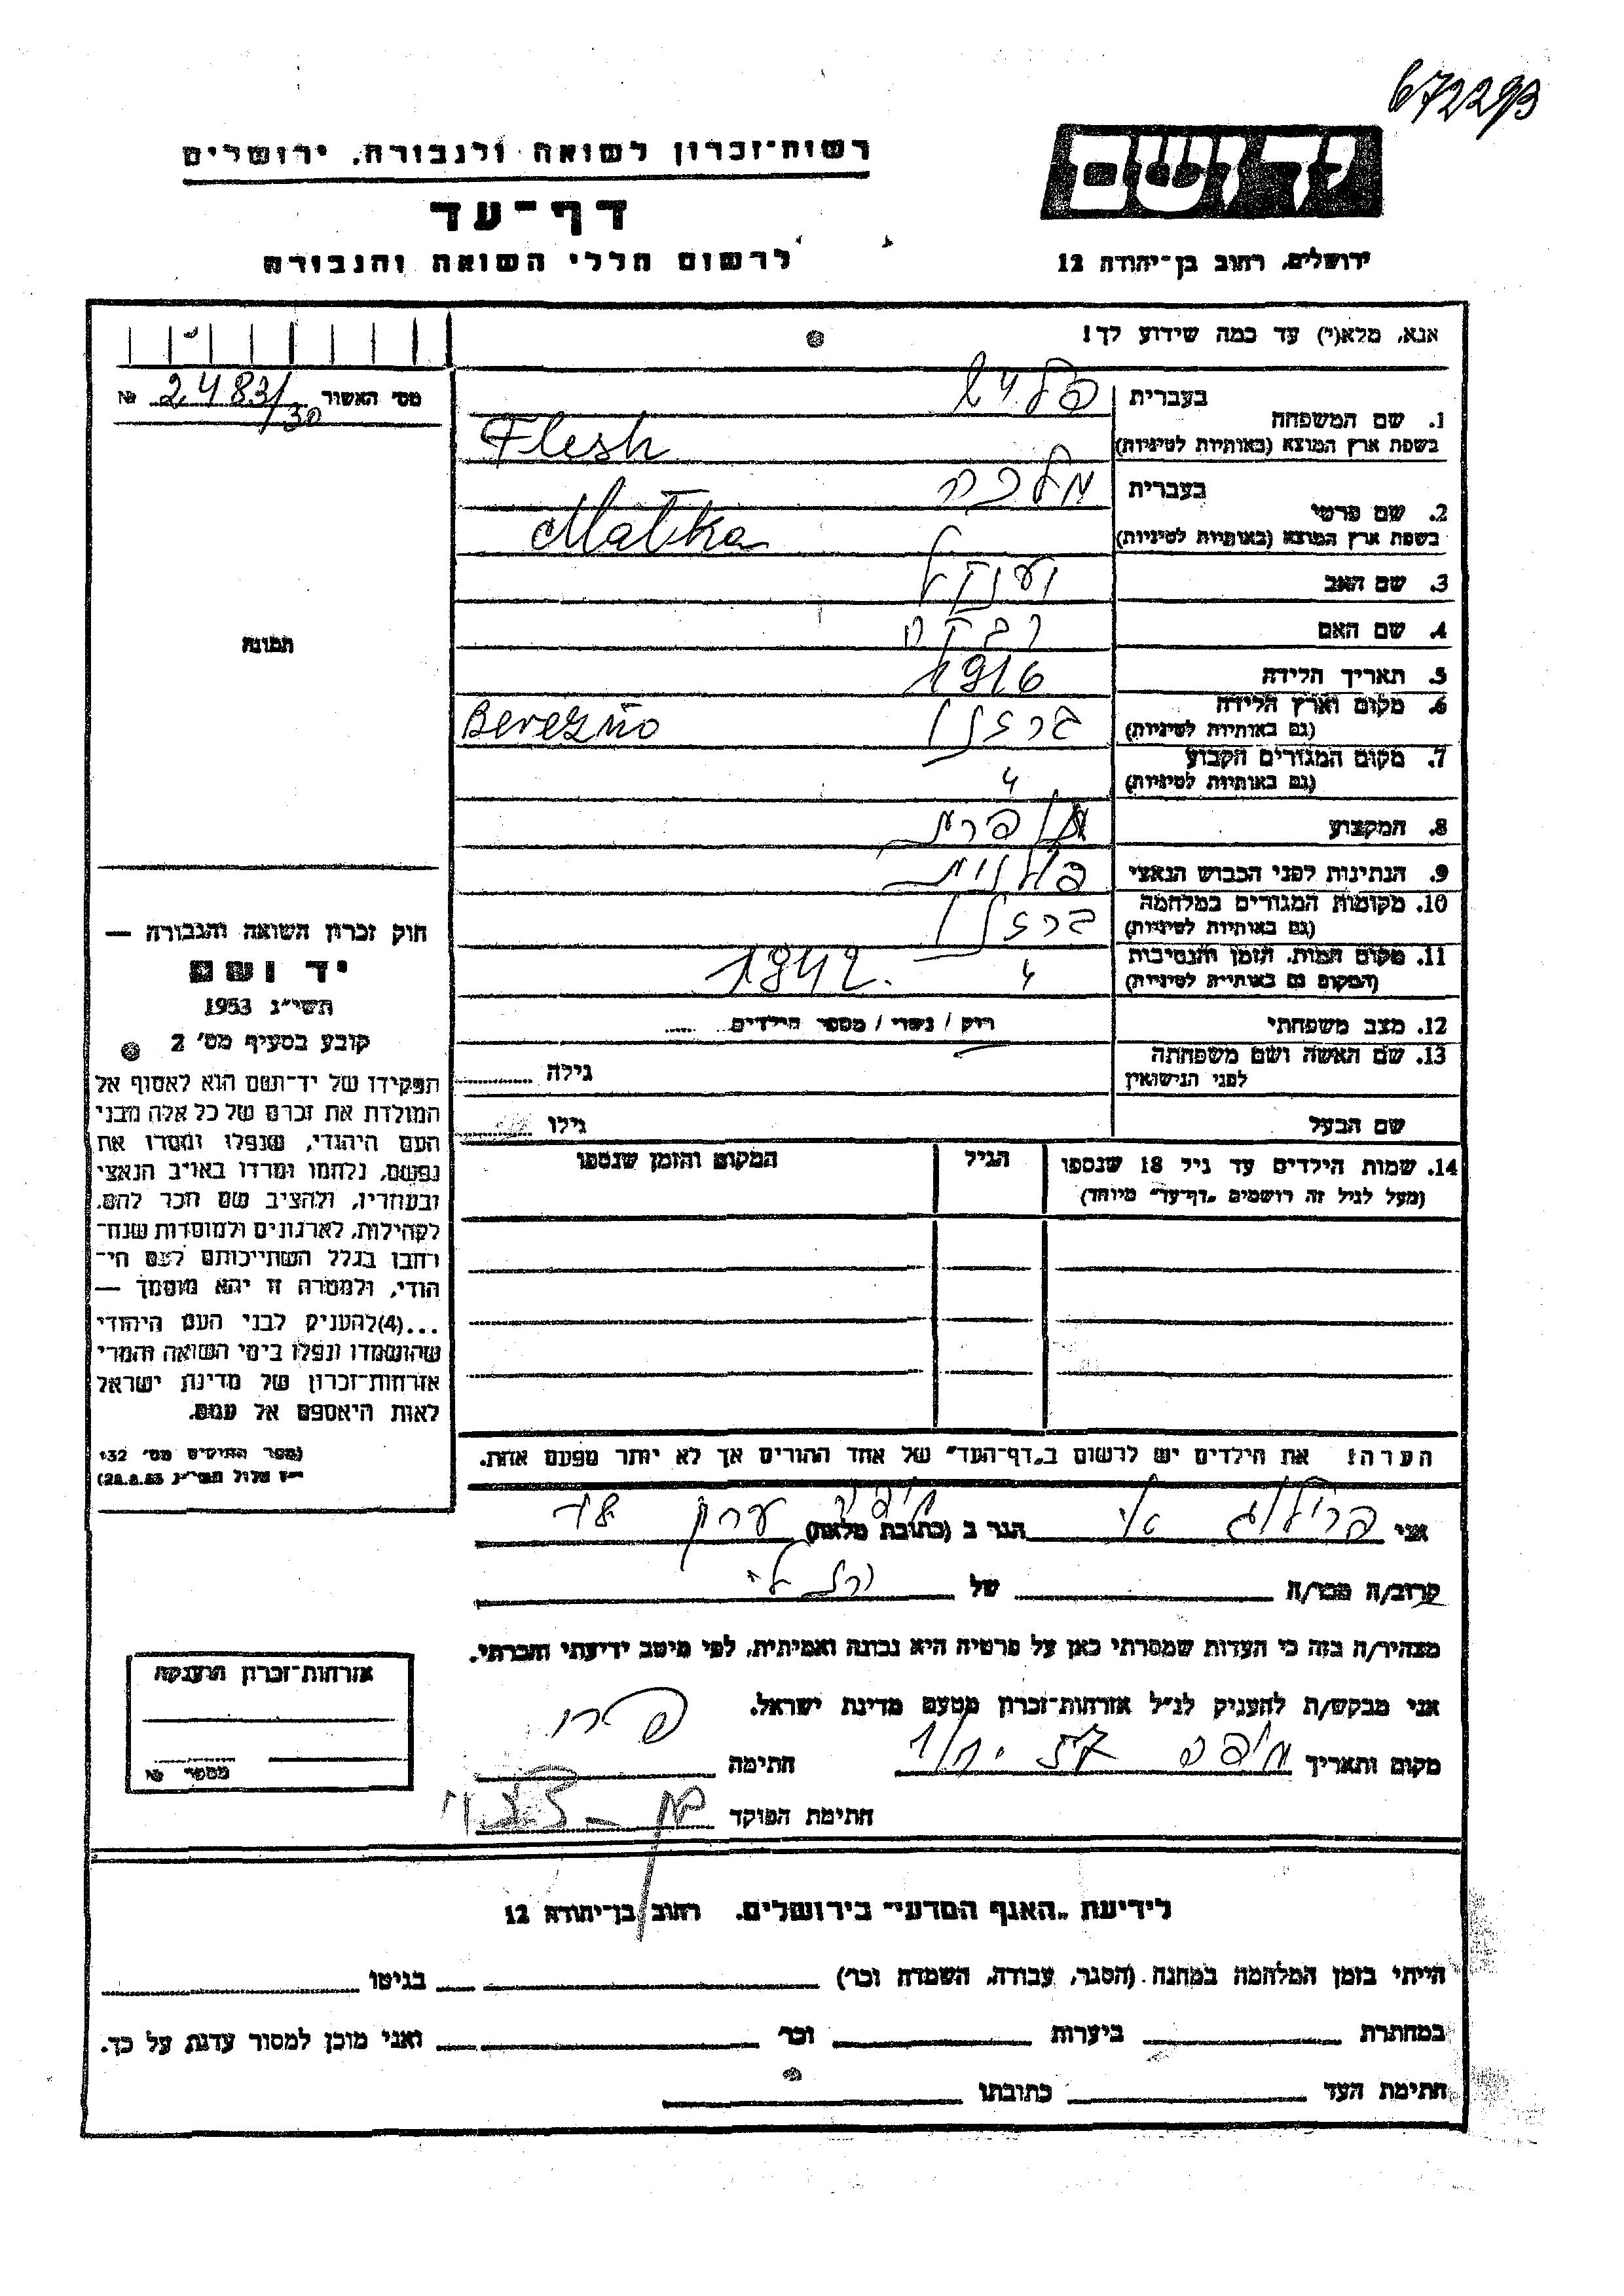 672293
יד ושם
רשות־זכרון לשואה ולגבורה, ירושלים
דף־עד
לרשום חללי השואה והגבורה
ירושלים, רחוב בן־יהודה 12
אנא, מלא(י) עד כמה שידוע לך!
מס' האשור 2483/30 №
1. שם המשפחה
בעברית
בשפת ארץ המוצא (באותיות לטיניות) Flesh
2. שם פרטי
בעברית מלכה
בשפת ארץ המוצא (באותיות לטיניות) Malka
3. שם האב
4. שם האם רבקה
5. תאריך הלידה 1916
6. מקום וארץ הלידה
(גם באותיות לטיניות) Berezno
7. מקום המגורים הקבוע
(גם באותיות לטיניות) "
8. המקצוע תופרת
9. הנתינות לפני הכבוש הנאצי פולנית
10. מקומות המגורים במלחמה
(גם באותיות לטיניות)
11. מקום המות, הזמן והנסיבות
(המקום גם באותיות לטיניות) " 1942.
12. מצב משפחתי רוק / נשוי / מספר הילדים
13. שם האשה ושם משפחתה
לפני הנישואין גילה
שם הבעל גילו
14. שמות הילדים עד גיל 18 שנספו
(מעל לגיל זה רושמים "דף־עד" מיוחד)
הגיל
המקום והזמן שנספו
הערה: את הילדים יש לרשום ב"דף־העד" של אחד ההורים אך לא יותר מפעם אחת.
תמונה
חוק זכרון השואה והגבורה —
יד ושם
תשי"ג 1953
קובע בסעיף מס' 2
תפקידו של יד־ושם הוא לאסוף אל
המולדת את זכרם של כל אלה מבני
העם היהודי, שנפלו ומסרו את
נפשם, נלחמו ומרדו באויב הנאצי
ובעוזריו, ולהציב שם וזכר להם,
לקהילות, לארגונים ולמוסדות שנח־
רחבו בגלל השתייכותם לעם הי־
הודי, ולמטרה זו יהא מוסמך —
...(4)להעניק לבני העם היהודי
שהושמדו ונפלו בימי השואה והמרי
אזרחות־זכרון של מדינת ישראל
לאות היאספם אל עמם.
(ספר החוקים מס' 132
י"ז אלול תשי"ג 28.8.53)
אני הגר ב (כתובת מלאה) חיפה
קרוב/ה מכר/ה של
מצהיר/ה בזה כי העדות שמסרתי כאן על פרטיה היא נכונה ואמיתית, לפי מיטב ידיעתי והכרתי.
אני מבקש/ת להעניק לנ"ל אזרחות־זכרון מטעם מדינת ישראל.
מקום ותאריך חיפה חתימה
חתימת הפוקד
אזרחות־זכרון הוענקה
מספר №
לידיעת "האגף המדעי" בירושלים, רחוב בן־יהודה 12
הייתי בזמן המלחמה במחנה (הסגר, עבודה, השמדה וכר') בגיטו
במחתרת ביערות וכר' ואני מוכן למסור עדות על כך.
חתימת העד כתובתו